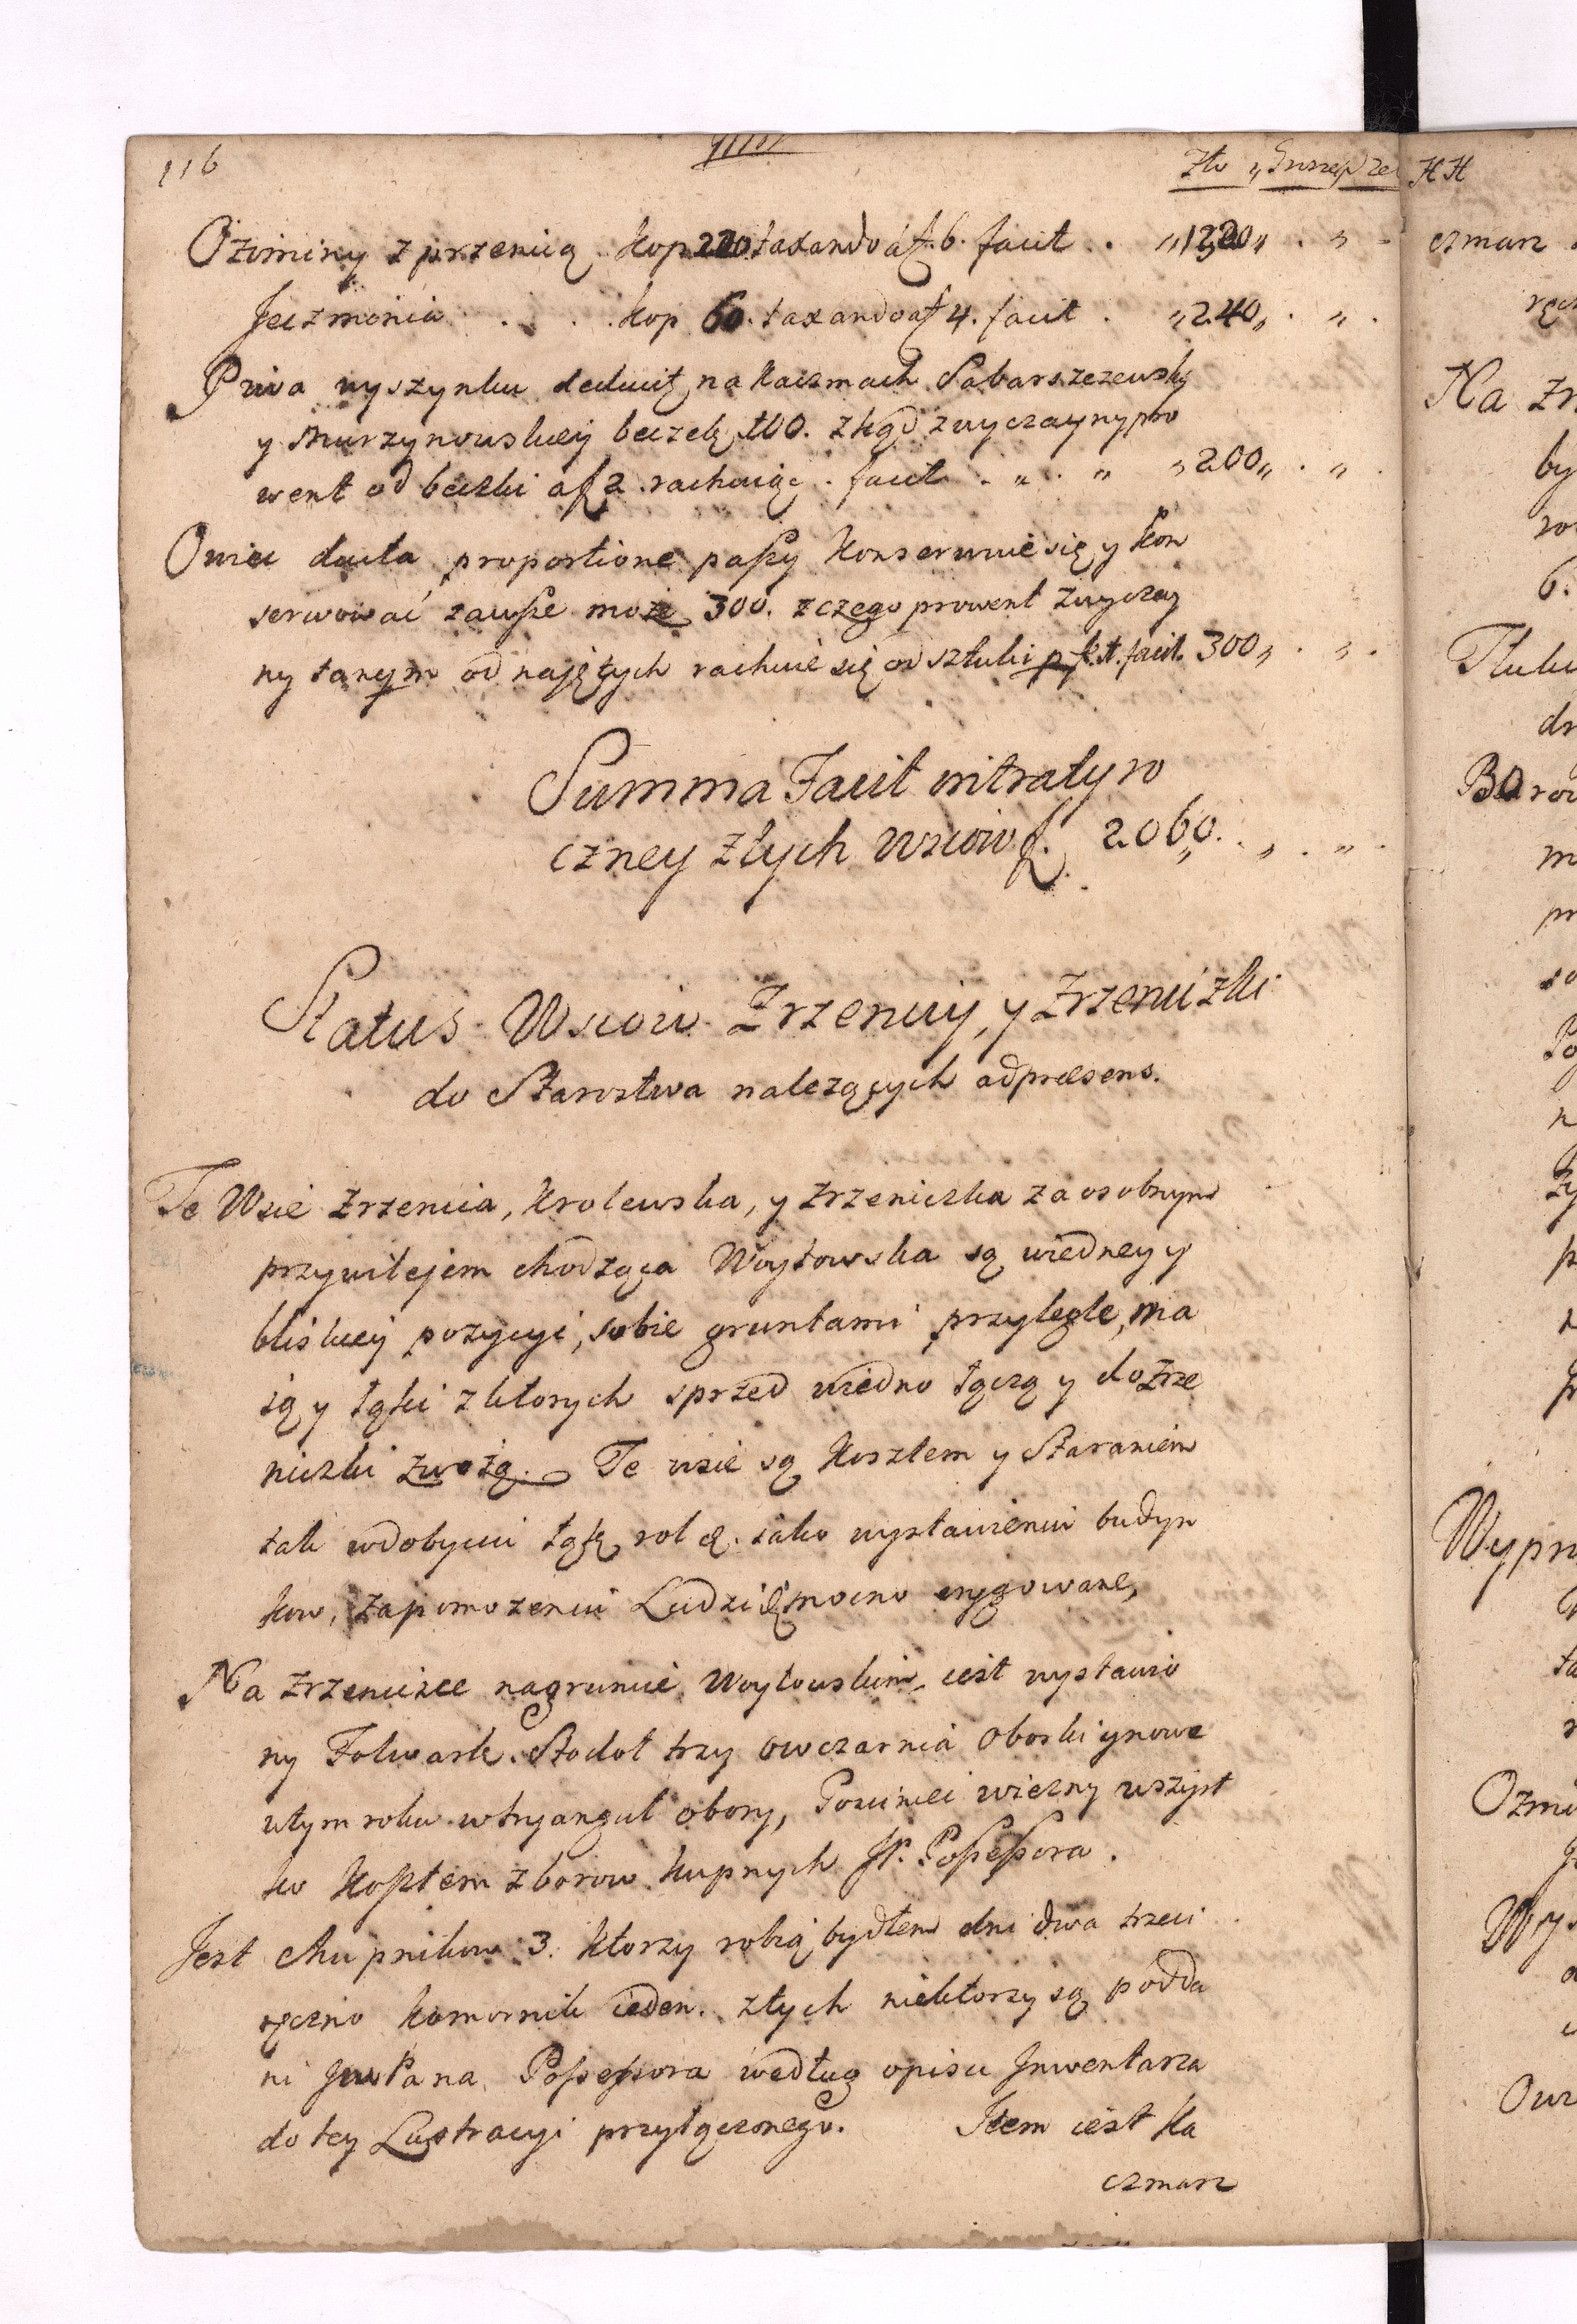 116
Zło „ Grosz
Oziminy z przenicą. kop 220. taxando a f. 6. facit . „1320„ . „ -
Jęczmienia . . . kop 60. taxando a f 4. facit . „240„ . „ .
Piwa wyszynku deducitę na karczmach Sabarszczewsky
y Murzynowskiey beczelę 100. zkąd zwyczayny pro
went od beczki a f 2. rachuiąc . facit . „ . „ „200„ . „ .
Owiec ducta proportione paszy konserwuie się y kon
serwować zawsze może 300. z czego prowent zwyczay
ny tanym od najętych rachuie się od sztuki p f. 1. facit. 300„ . „ .
Summa Facit intraty ro
czney z tych wsiow f. 2060. . „ . „ .
Status Wsiow Zrzenicy, y Zrzeniczki
do Starostwa nalezących ad praesens.
Te Wsie Zrzenica, Krolewska, y Zrzeniczka za osobnym
przywilejem chodząca Woytowska są wiedney y
bliskiey pozycyi, sobie gruntami przyległe, ma
ią y łąki z ktorych sprzed wiedno łączą y do Zrze
niczki zwożą. Te wsie są kosztem y Staraniem
tak wdobyciu łąk, rolę. iako wystawieniu budyn
kow, zapomożeniu Ludzi mocno erygowane,
Na Zrzeniczce na gruncie Woytowskim, iest wystawio
ny Folwark. Stodoł trzy owczarnia Oborki y nowe
w tym roku w tryangul obory, Powinei wieczny wszyst
ko kosztem z borow kupnych JP. Possessora.
Jest chupnikow 3. ktorzy robią bydłem dni dwa trzeci
ręczno komornik ieden. z tych niektorzy są podda
ni JmPana Possessora według opisu Inwentarza
do tey Lustracyi przyłączonego. Item iest Ka
czmarz
HH
czmarz
Na Zr
by
6.
dr
m
pr
so
n
p
Wypr
Ozmi
Wy